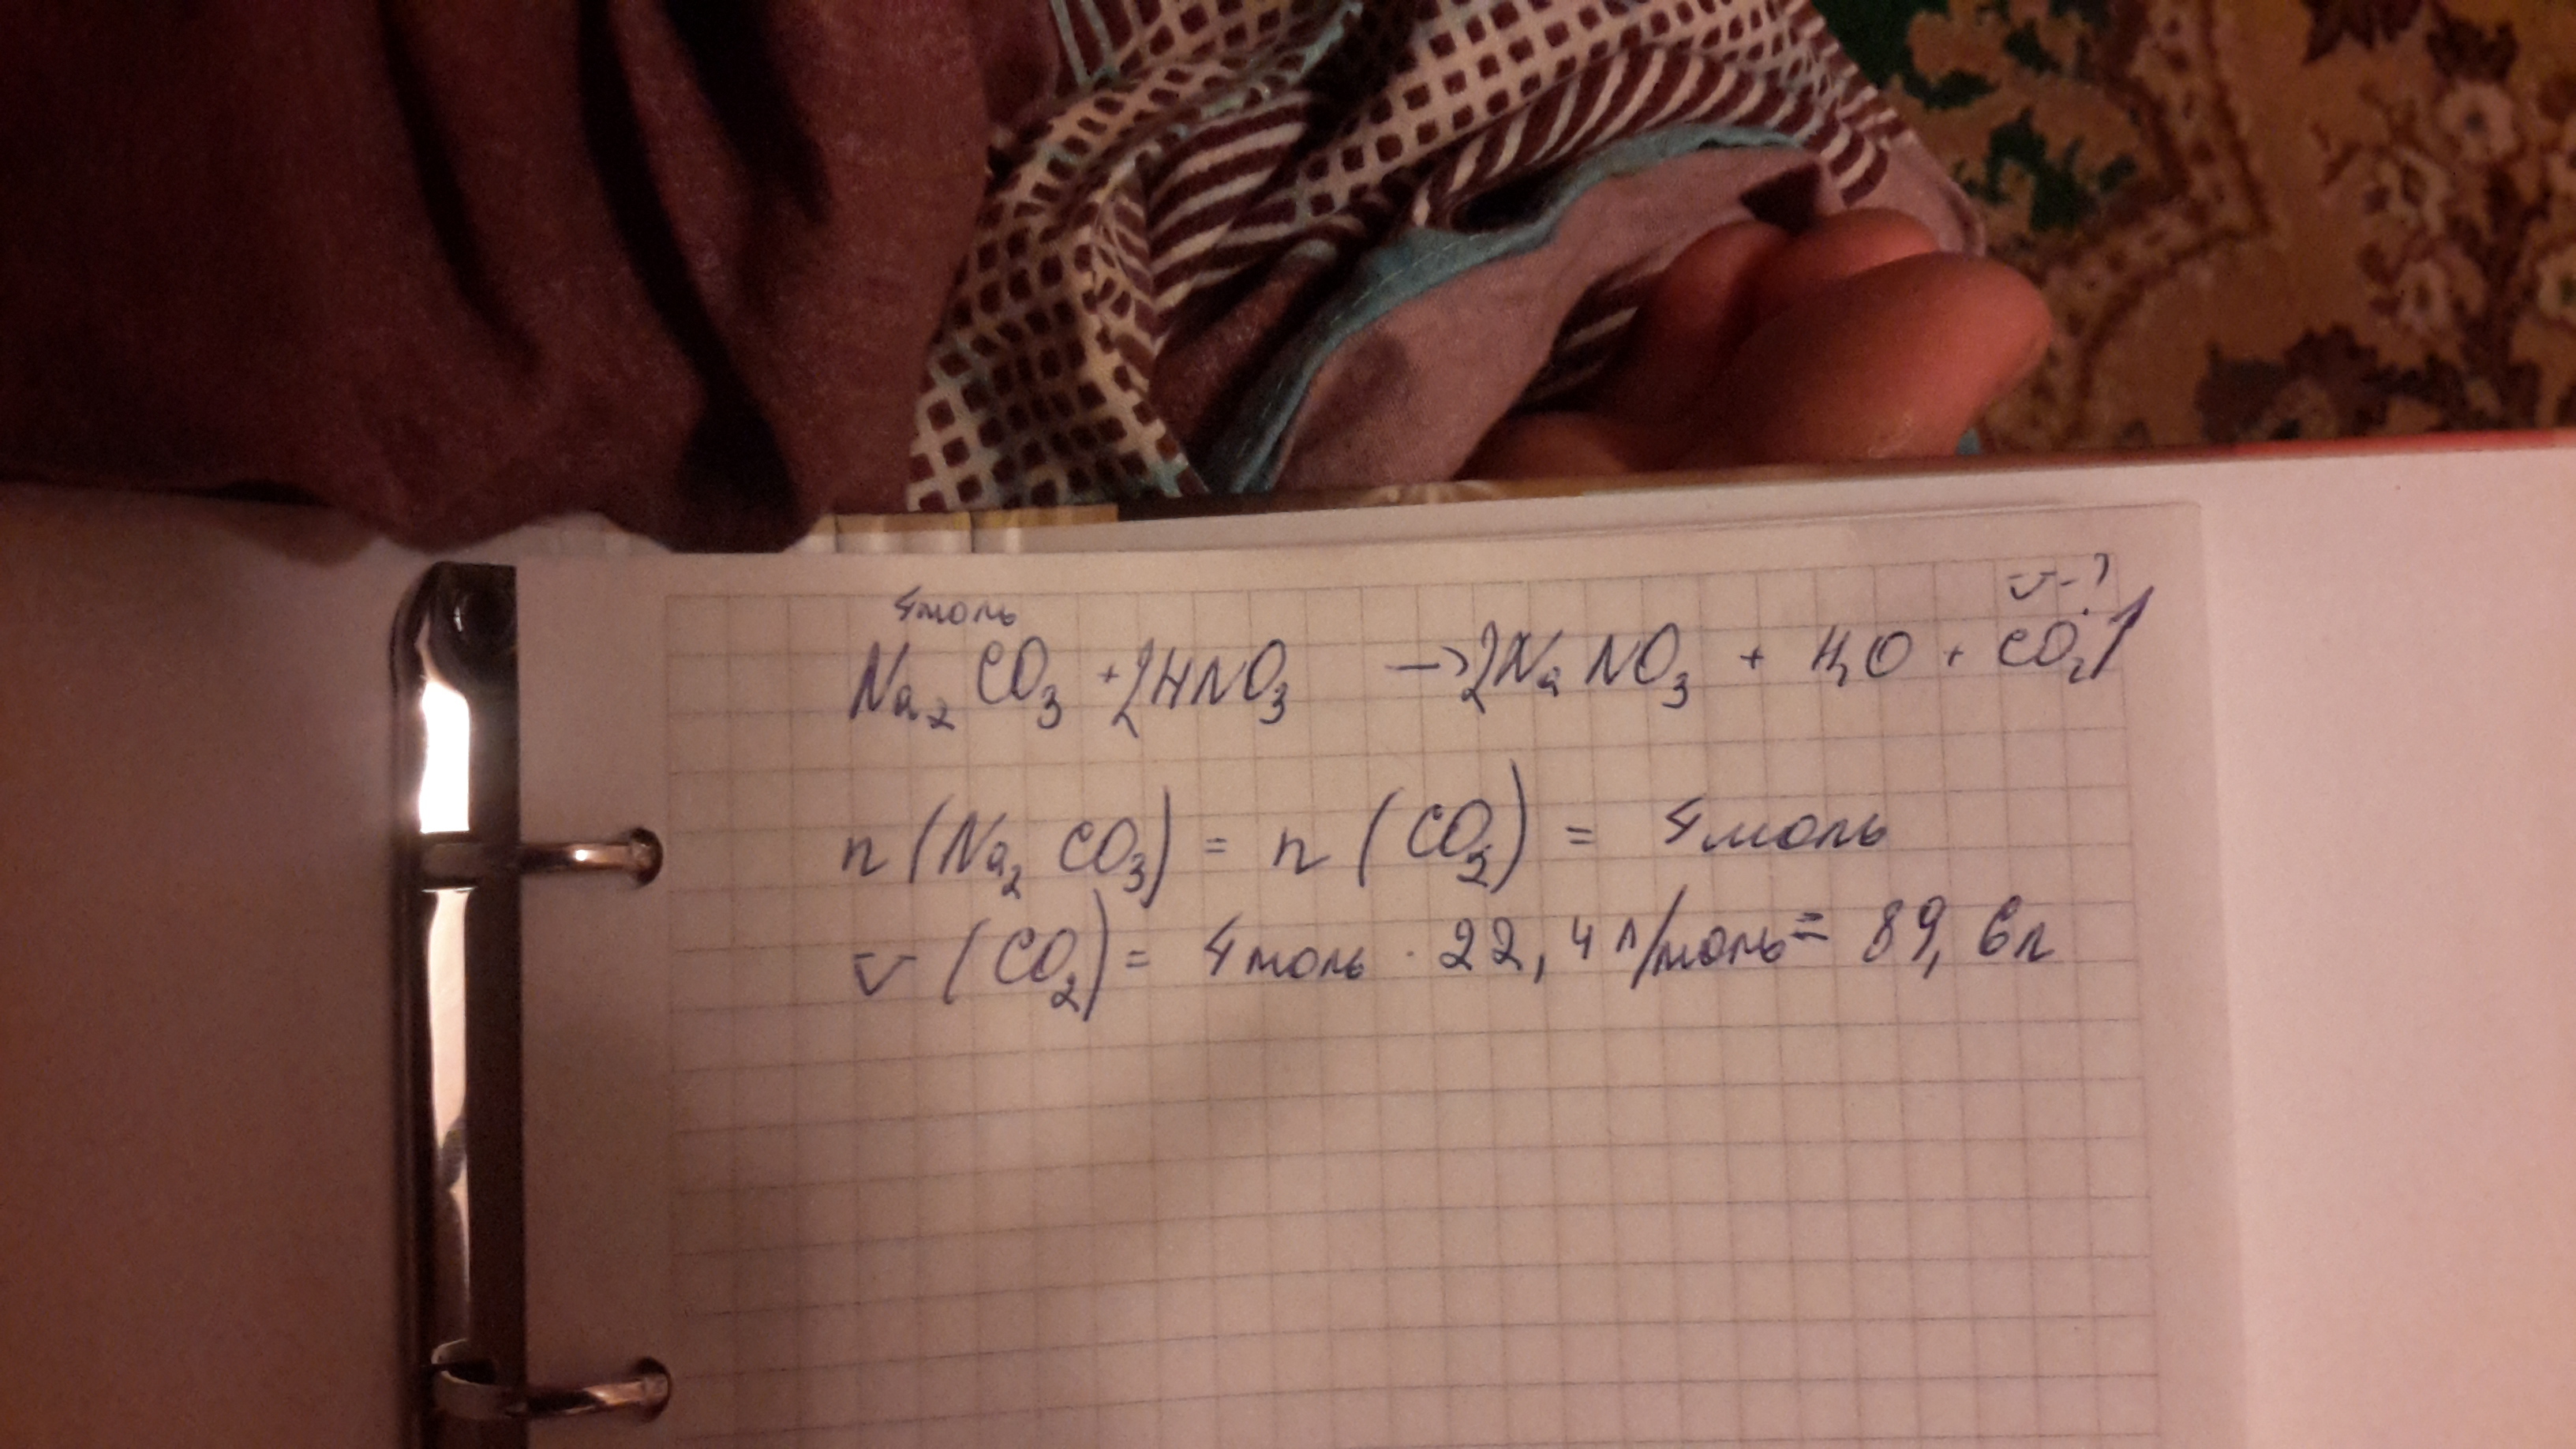 4моль V-?
Na₂CO₃ + 2HNO₃ → 2NaNO₃ + H₂O + CO₂↑
n (Na₂CO₃) = n (CO₂) = 4 моль
V (CO₂) = 4 моль · 22,4 л/моль = 89,6 л